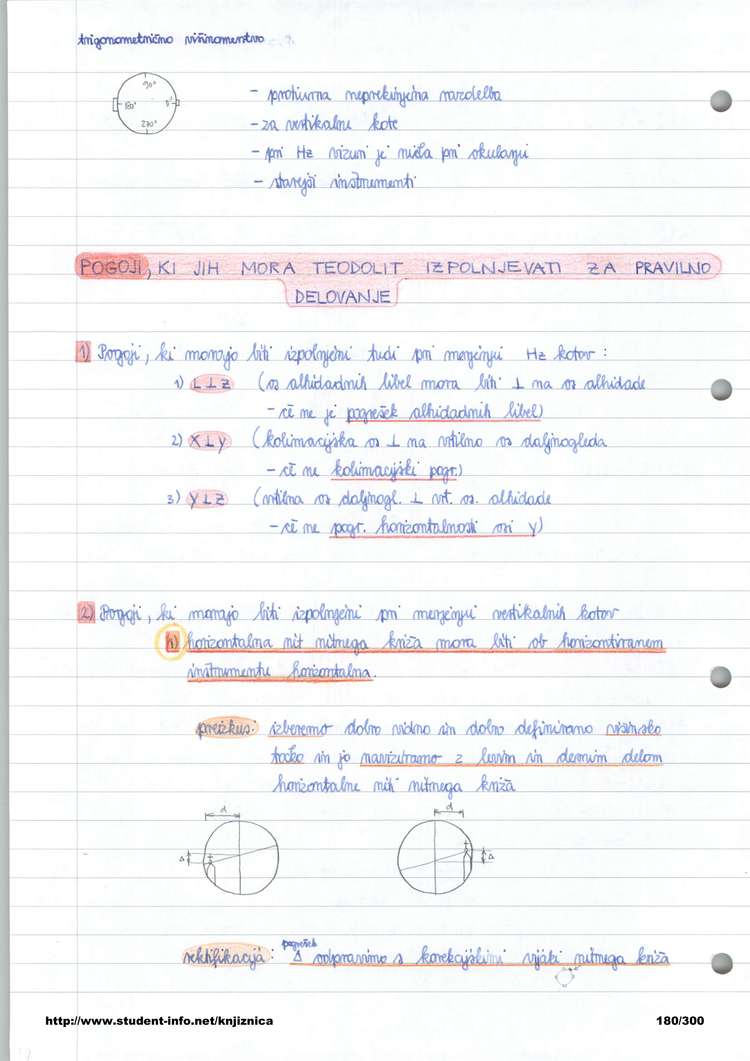 trigonometrično višinomerstvo - 9.
90°
180° 0°
270°
- protiurna neprekinjena razdelba
- za vertikalne kote
- pri Hz vizuri je ničla pri okularju
- starejši instrumenti
POGOJI, KI JIH MORA TEODOLIT IZPOLNJEVATI ZA PRAVILNO
DELOVANJE
1) Pogoji, ki morajo biti izpolnjeni tudi pri merjenju Hz kotov:
1) L ⊥ Z (os alhidadnih libel mora biti ⊥ na os alhidade
- če ne je pogrešek alhidadnih libel)
2) X ⊥ Y (kolimacijska os ⊥ na vrtilno os daljnogleda
- če ne kolimacijski pogr.)
3) Y ⊥ Z (vrtilna os daljnogl. ⊥ vrt. os. alhidade
- če ne pogr. horizontalnosti osi y)
2) Pogoji, ki morajo biti izpolnjeni pri merjenju vertikalnih kotov
1) horizontalna nit nitnega križa mora biti ob horizontiranem
instrumentu horizontalna.
preizkus: izberemo dobro vidno in dobro definirano višinsko
točko in jo naviziramo z levim in desnim delom
horizontalne niti nitnega križa
d d
Δ Δ
pogrešek
rektifikacija: Δ odpravimo s korekcijskimi vijaki nitnega križa
http://www.student-info.net/knjiznica 180/300